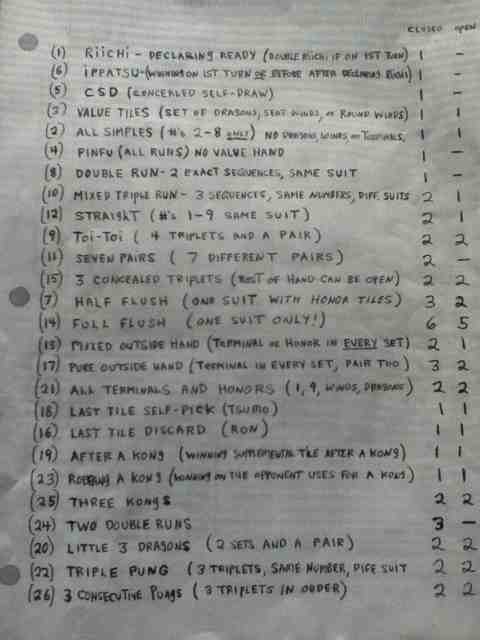 CLOSED OPEN
(1) RIICHI - DECLARING READY (DOUBLE RIICHI IF ON 1ST TURN) 1 -
(6) IPPATSU - (WINNING ON 1ST TURN OF BEFORE AFTER DECLARING RIICHI) 1 -
(5) CSD (CONCEALED SELF-DRAW) 1 -
(3) VALUE TILES (SET OF DRAGONS, SEAT WINDS, OR ROUND WINDS) 1 1
(2) ALL SIMPLES (#'s 2-8 ONLY) NO DRAGONS, WINDS, OR TERMINALS, 1 1
(4) PINFU (ALL RUNS) NO VALUE HAND 1 -
(8) DOUBLE RUN - 2 EXACT SEQUENCES, SAME SUIT 1 -
(10) MIXED TRIPLE RUN - 3 SEQUENCES, SAME NUMBERS, DIFF. SUITS 2 1
(12) STRAIGHT (#'s 1-9 SAME SUIT) 2 1
(9) TOI-TOI (4 TRIPLETS AND A PAIR) 2 2
(11) SEVEN PAIRS (7 DIFFERENT PAIRS) 2 -
(15) 3 CONCEALED TRIPLETS (REST OF HAND CAN BE OPEN) 2 2
(7) HALF FLUSH (ONE SUIT WITH HONOR TILES) 3 2
(14) FULL FLUSH (ONE SUIT ONLY!) 6 5
(13) MIXED OUTSIDE HAND (TERMINAL OR HONOR IN EVERY SET) 2 1
(17) PURE OUTSIDE HAND (TERMINAL IN EVERY SET, PAIR TOO) 3 2
(21) ALL TERMINALS AND HONORS (1, 9, WINDS, DRAGONS) 2 2
(18) LAST TILE SELF-PICK (TSUMO) 1 1
(16) LAST TILE DISCARD (RON) 1 1
(19) AFTER A KONG (WINNING SUPPLEMENTAL TILE AFTER A KONG) 1 1
(23) ROBBING A KONG (WINNING ON TILE OPPONENT USES FOR A KONG) 1 1
(25) THREE KONGS 2 2
(24) TWO DOUBLE RUNS 3 -
(20) LITTLE 3 DRAGONS (2 SETS AND A PAIR) 2 2
(22) TRIPLE PUNG (3 TRIPLETS, SAME NUMBER, DIFF SUIT 2 2
(26) 3 CONSECUTIVE PUNGS (3 TRIPLETS IN ORDER) 2 2